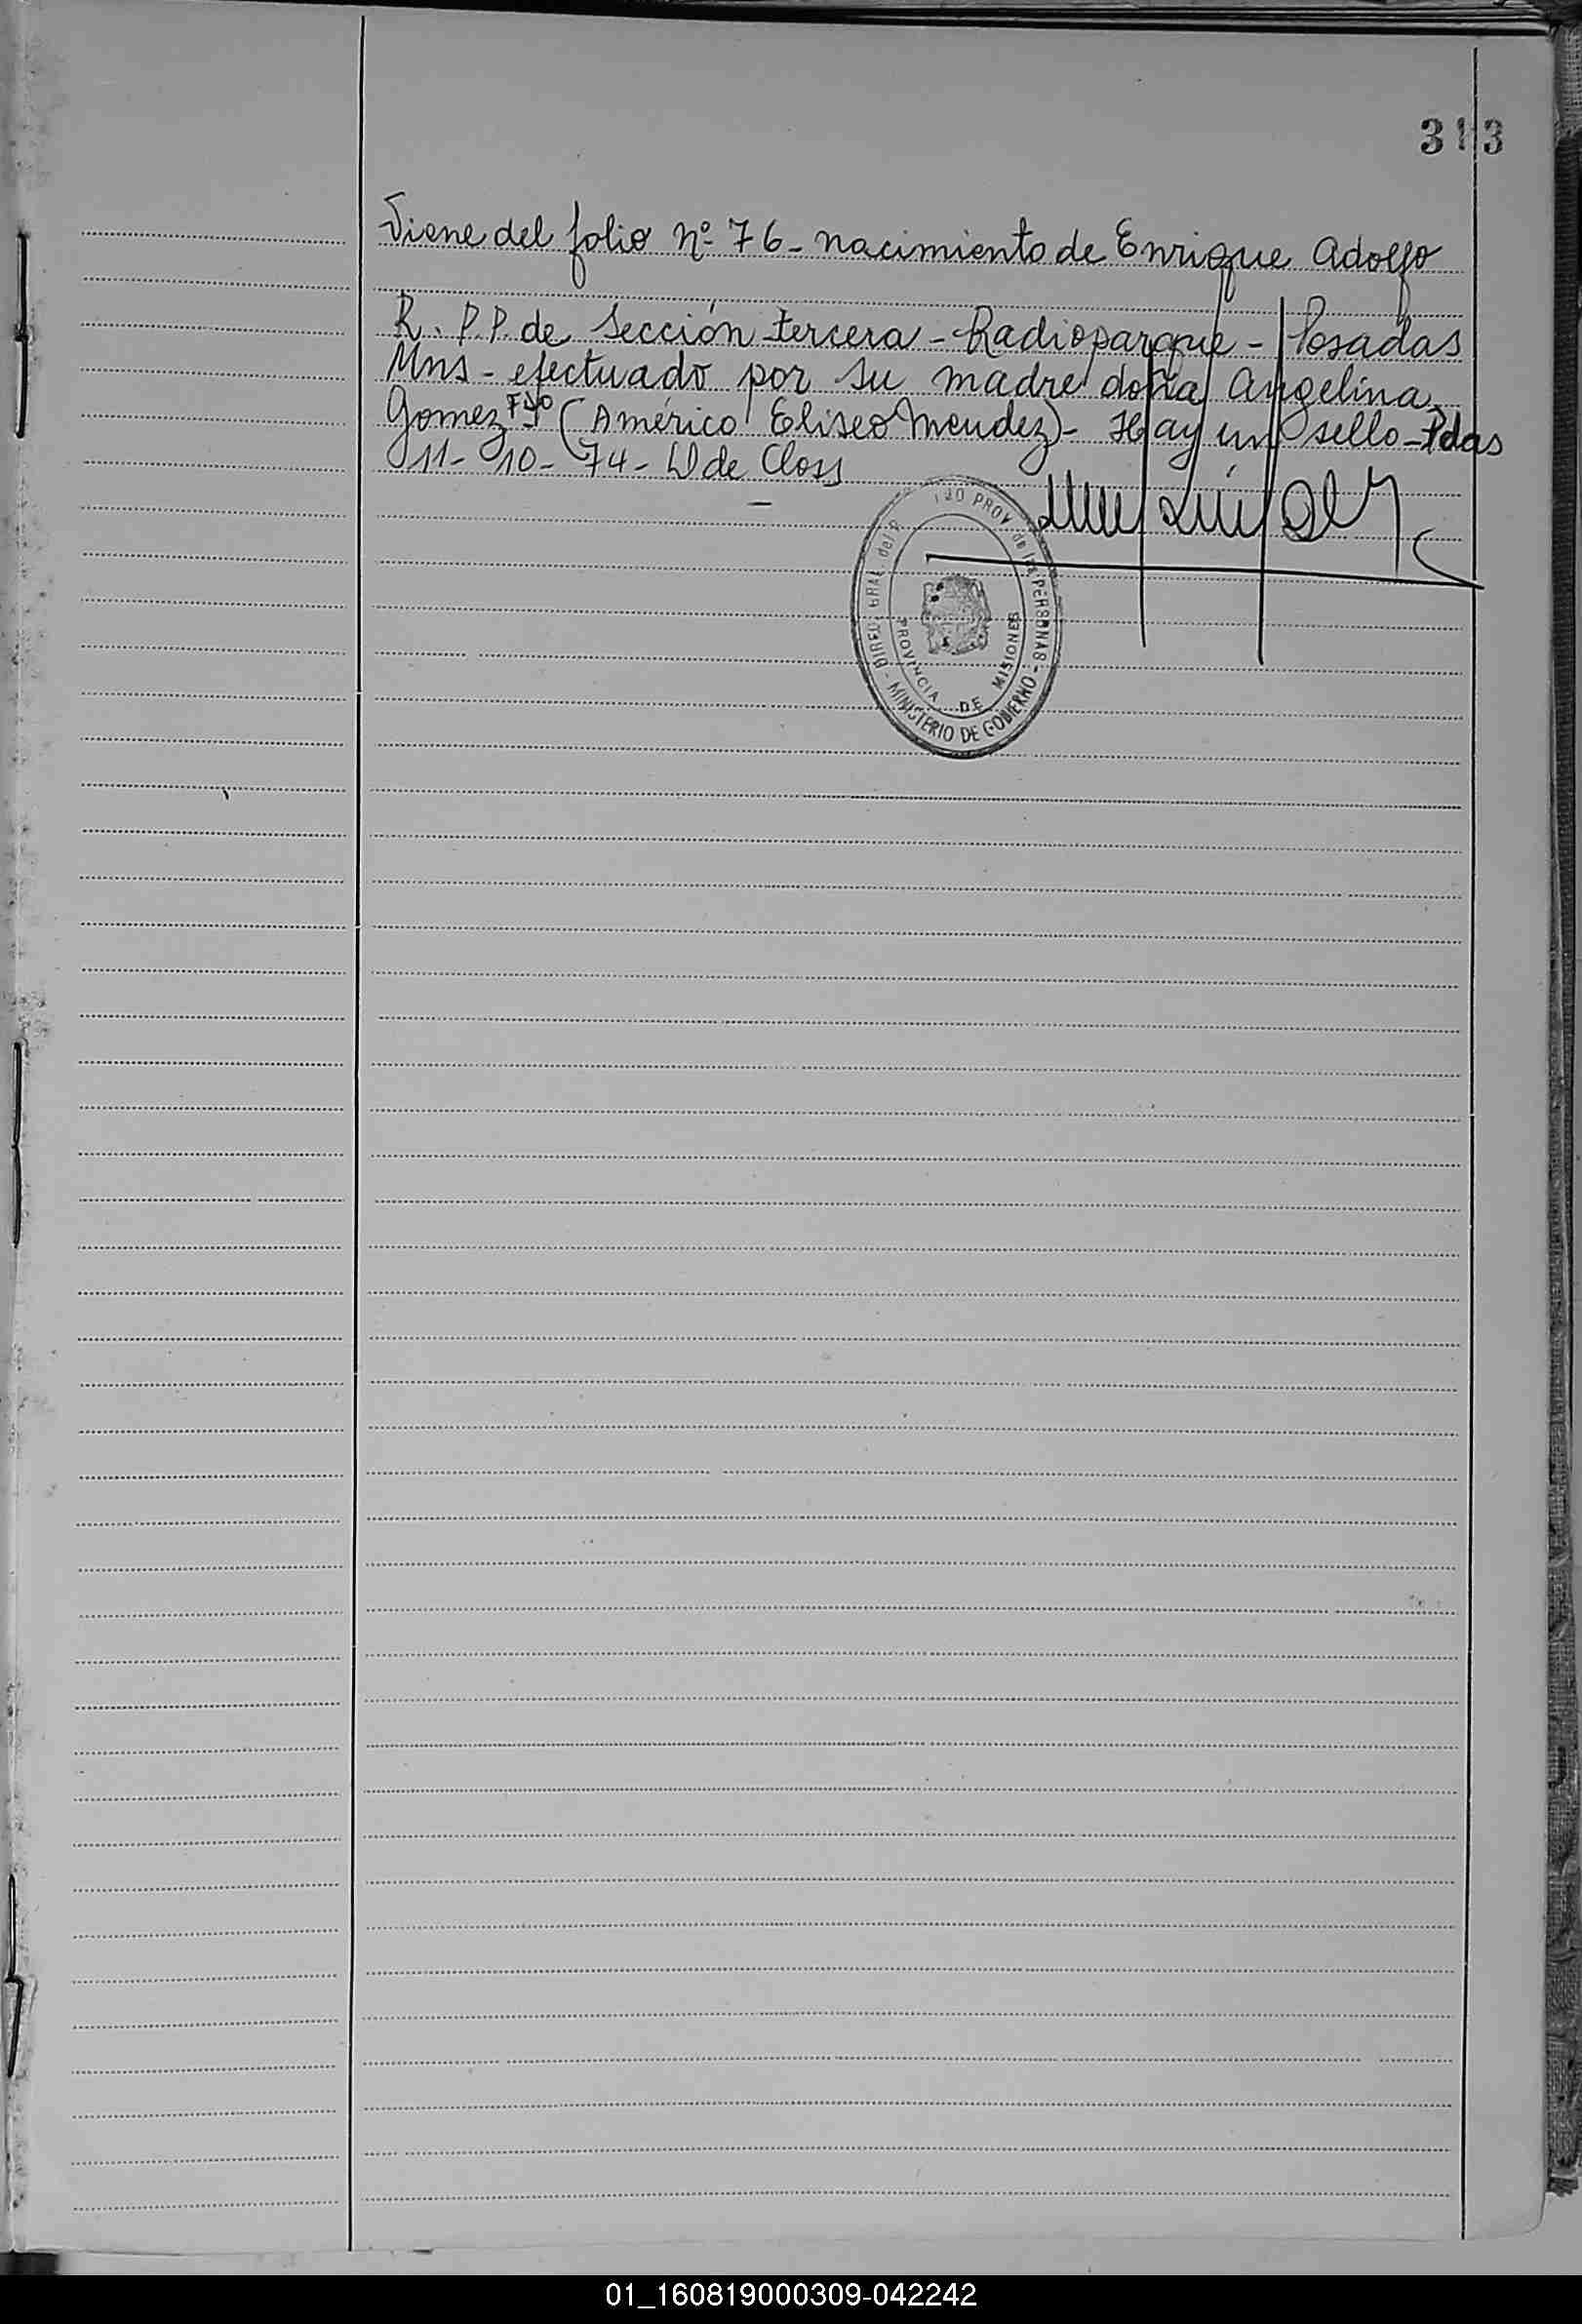 313
Viene del folio Nº 76 - nacimiento de Enrique Adolfo
R. P.P. de Sección tercera - Radioparque - Posadas
Mns - efectuado por su madre doña Angelina
Gomez Fdo (Américo Eliseo Mendez) - Hay un sello - Pdas
11 - 10 - 74 - W de Closs
DIREC. GRAL del R
TJO PROV de las PERSONAS
- MINISTERIO DE GOBIERNO -
PROVINCIA DE MISIONES
01_160819000309-042242